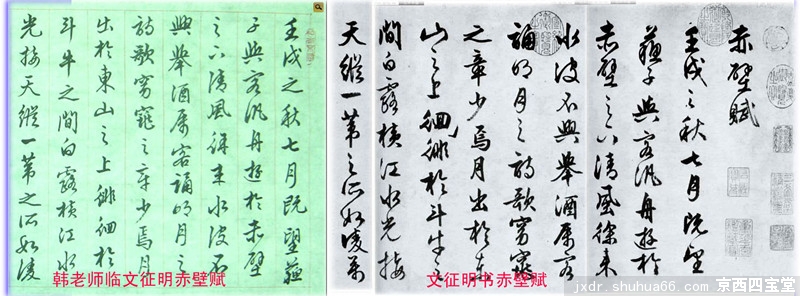 壬戌之秋七月既望蘇
子與客汎舟遊於赤壁
之下清風徐來水波不
興舉酒屬客誦明月之
詩歌窈窕之章少焉月
出於東山之上徘徊於
斗牛之間白露橫江水
光接天縱一葦之所如凌
韩老师临文征明赤壁赋
赤壁賦
壬戌之秋七月既望
蘇子與客汎舟遊於
赤壁之下清風徐來
水波不興舉酒屬客
誦明月之詩歌窈窕
之章少焉月出於東
山之上徊徘於斗牛之
間白露橫江水光接
天縱一葦之所如凌萬
文征明书赤壁赋
jxdr.shuhua66.com 京西四宝堂